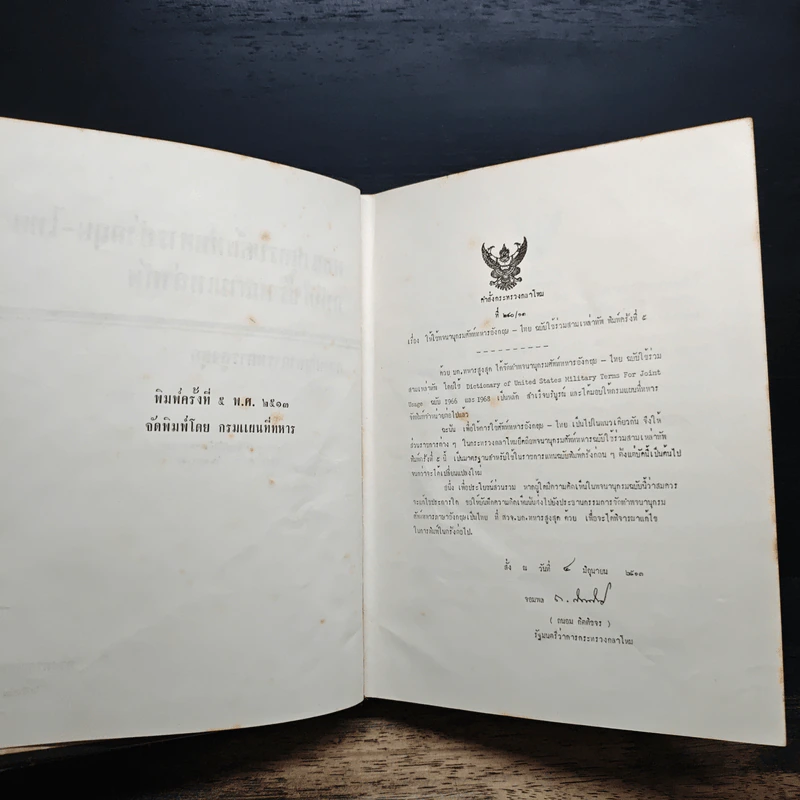 พิมพ์ครั้งที่ ๕ พ.ศ. ๒๕๑๓
จัดพิมพ์โดย กรมแผนที่ทหาร
คำสั่งกระทรวงกลาโหม
ที่ ๒๔๐/๑๓
เรื่อง ให้ใช้พจนานุกรมศัพท์ทหารอังกฤษ - ไทย ฉบับใช้ร่วมสามเหล่าทัพ พิมพ์ครั้งที่ ๕
ด้วย บก.ทหารสูงสุด ได้จัดทำพจนานุกรมศัพท์ทหารอังกฤษ - ไทย ฉบับใช้ร่วม
สามเหล่าทัพ โดยใช้ Dictionary of United States Military Terms For Joint
Usage ฉบับ 1966 และ 1968 เป็นหลัก สำเร็จบริบูรณ์ และได้มอบให้กรมแผนที่ทหาร
จัดพิมพ์จำหน่ายต่อไปแล้ว
ฉะนั้น เพื่อให้การใช้ศัพท์ทหารอังกฤษ - ไทย เป็นไปในแนวเดียวกัน จึงให้
ส่วนราชการต่าง ๆ ในกระทรวงกลาโหมยึดถือพจนานุกรมศัพท์ทหารฉบับใช้ร่วมสามเหล่าทัพ
พิมพ์ครั้งที่ ๕ นี้ เป็นมาตรฐานสำหรับใช้ในราชการแทนฉบับพิมพ์ครั้งก่อน ๆ ตั้งแต่บัดนี้เป็นต้นไป
จนกว่าจะได้เปลี่ยนแปลงใหม่
อนึ่ง เพื่อประโยชน์ส่วนรวม หากผู้ใดมีความคิดเห็นในพจนานุกรมฉบับนี้ว่าสมควร
จะแก้ไขประการใด ขอให้บันทึกความคิดเห็นนั้นส่งไปยังประธานกรรมการจัดทำพจนานุกรม
ศัพท์ทหารภาษาอังกฤษเป็นไทย ที่ สจจ.บก.ทหารสูงสุด ด้วย เพื่อจะได้พิจารณาแก้ไข
ในการพิมพ์ในครั้งต่อไป.
สั่ง ณ วันที่ ๔ มิถุนายน ๒๕๑๓
จอมพล
( ถนอม กิตติขจร )
รัฐมนตรีว่าการกระทรวงกลาโหม